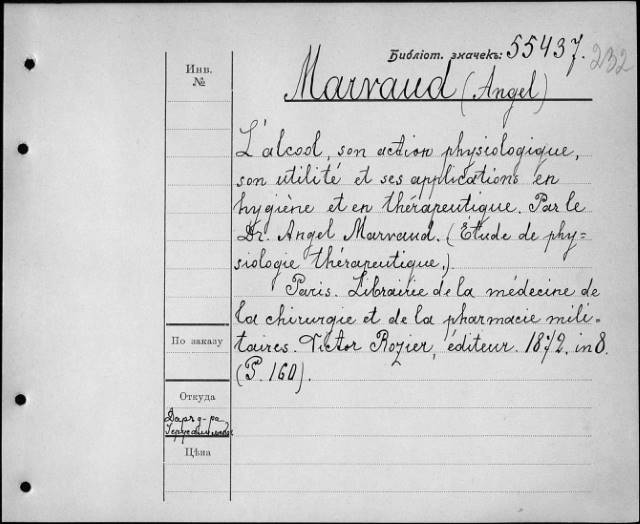 Библіот. значекъ: 55437. 232
Инв.
№
Marvaud (Angel)
L'alcool, son action physiologique,
son utilité et ses applications en
hygiène et en thérapeutique. Par le
Dr. Angel Marvaud. (Étude de phy=
siologie thérapeutique.)
Paris. Librairie de la médecine de
la chirurgie et de la pharmacie mili-
taires. Victor Rozier, éditeur. 1872. in 8.
(P. 160).
По заказу
Откуда
Даръ д-ра
Цѣна